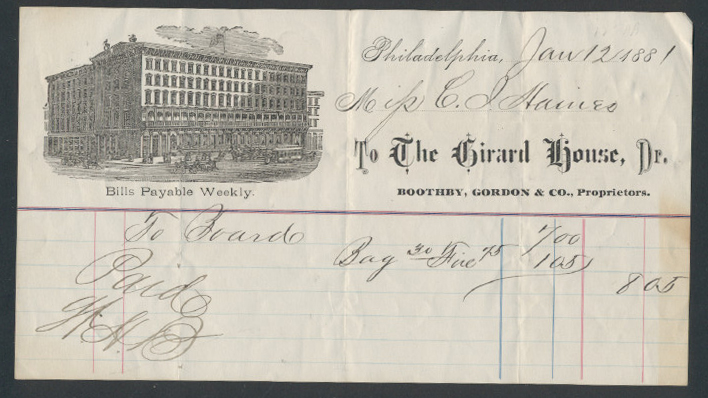 Philadelphia, Jan 12 1881
Miss C. J. Haines
To The Girard House, Dr.
BOOTHBY, GORDON & CO., Proprietors.
Bills Payable Weekly.
To Board 7 00
Bag 30 Fire 75 1 05
8 05
Paid
W.H.B